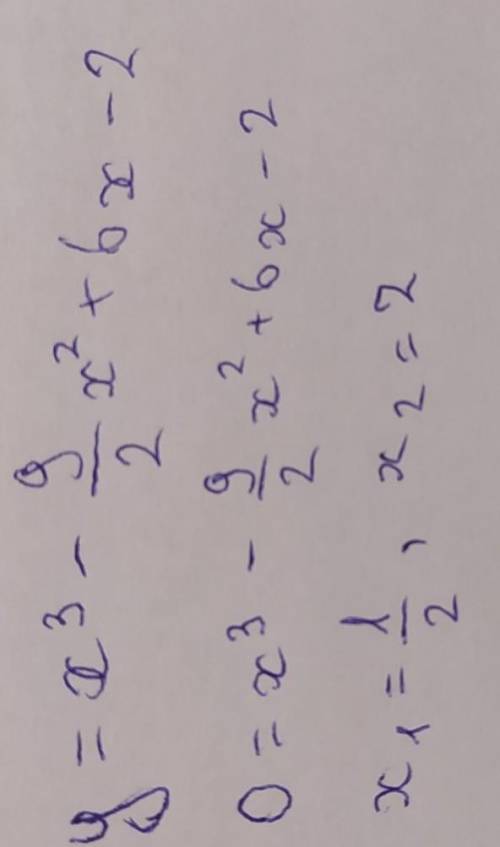 y = x³ - 9/2 x² + 6x - 2
0 = x³ - 9/2 x² + 6x - 2
x₁ = 1/2, x₂ = 2